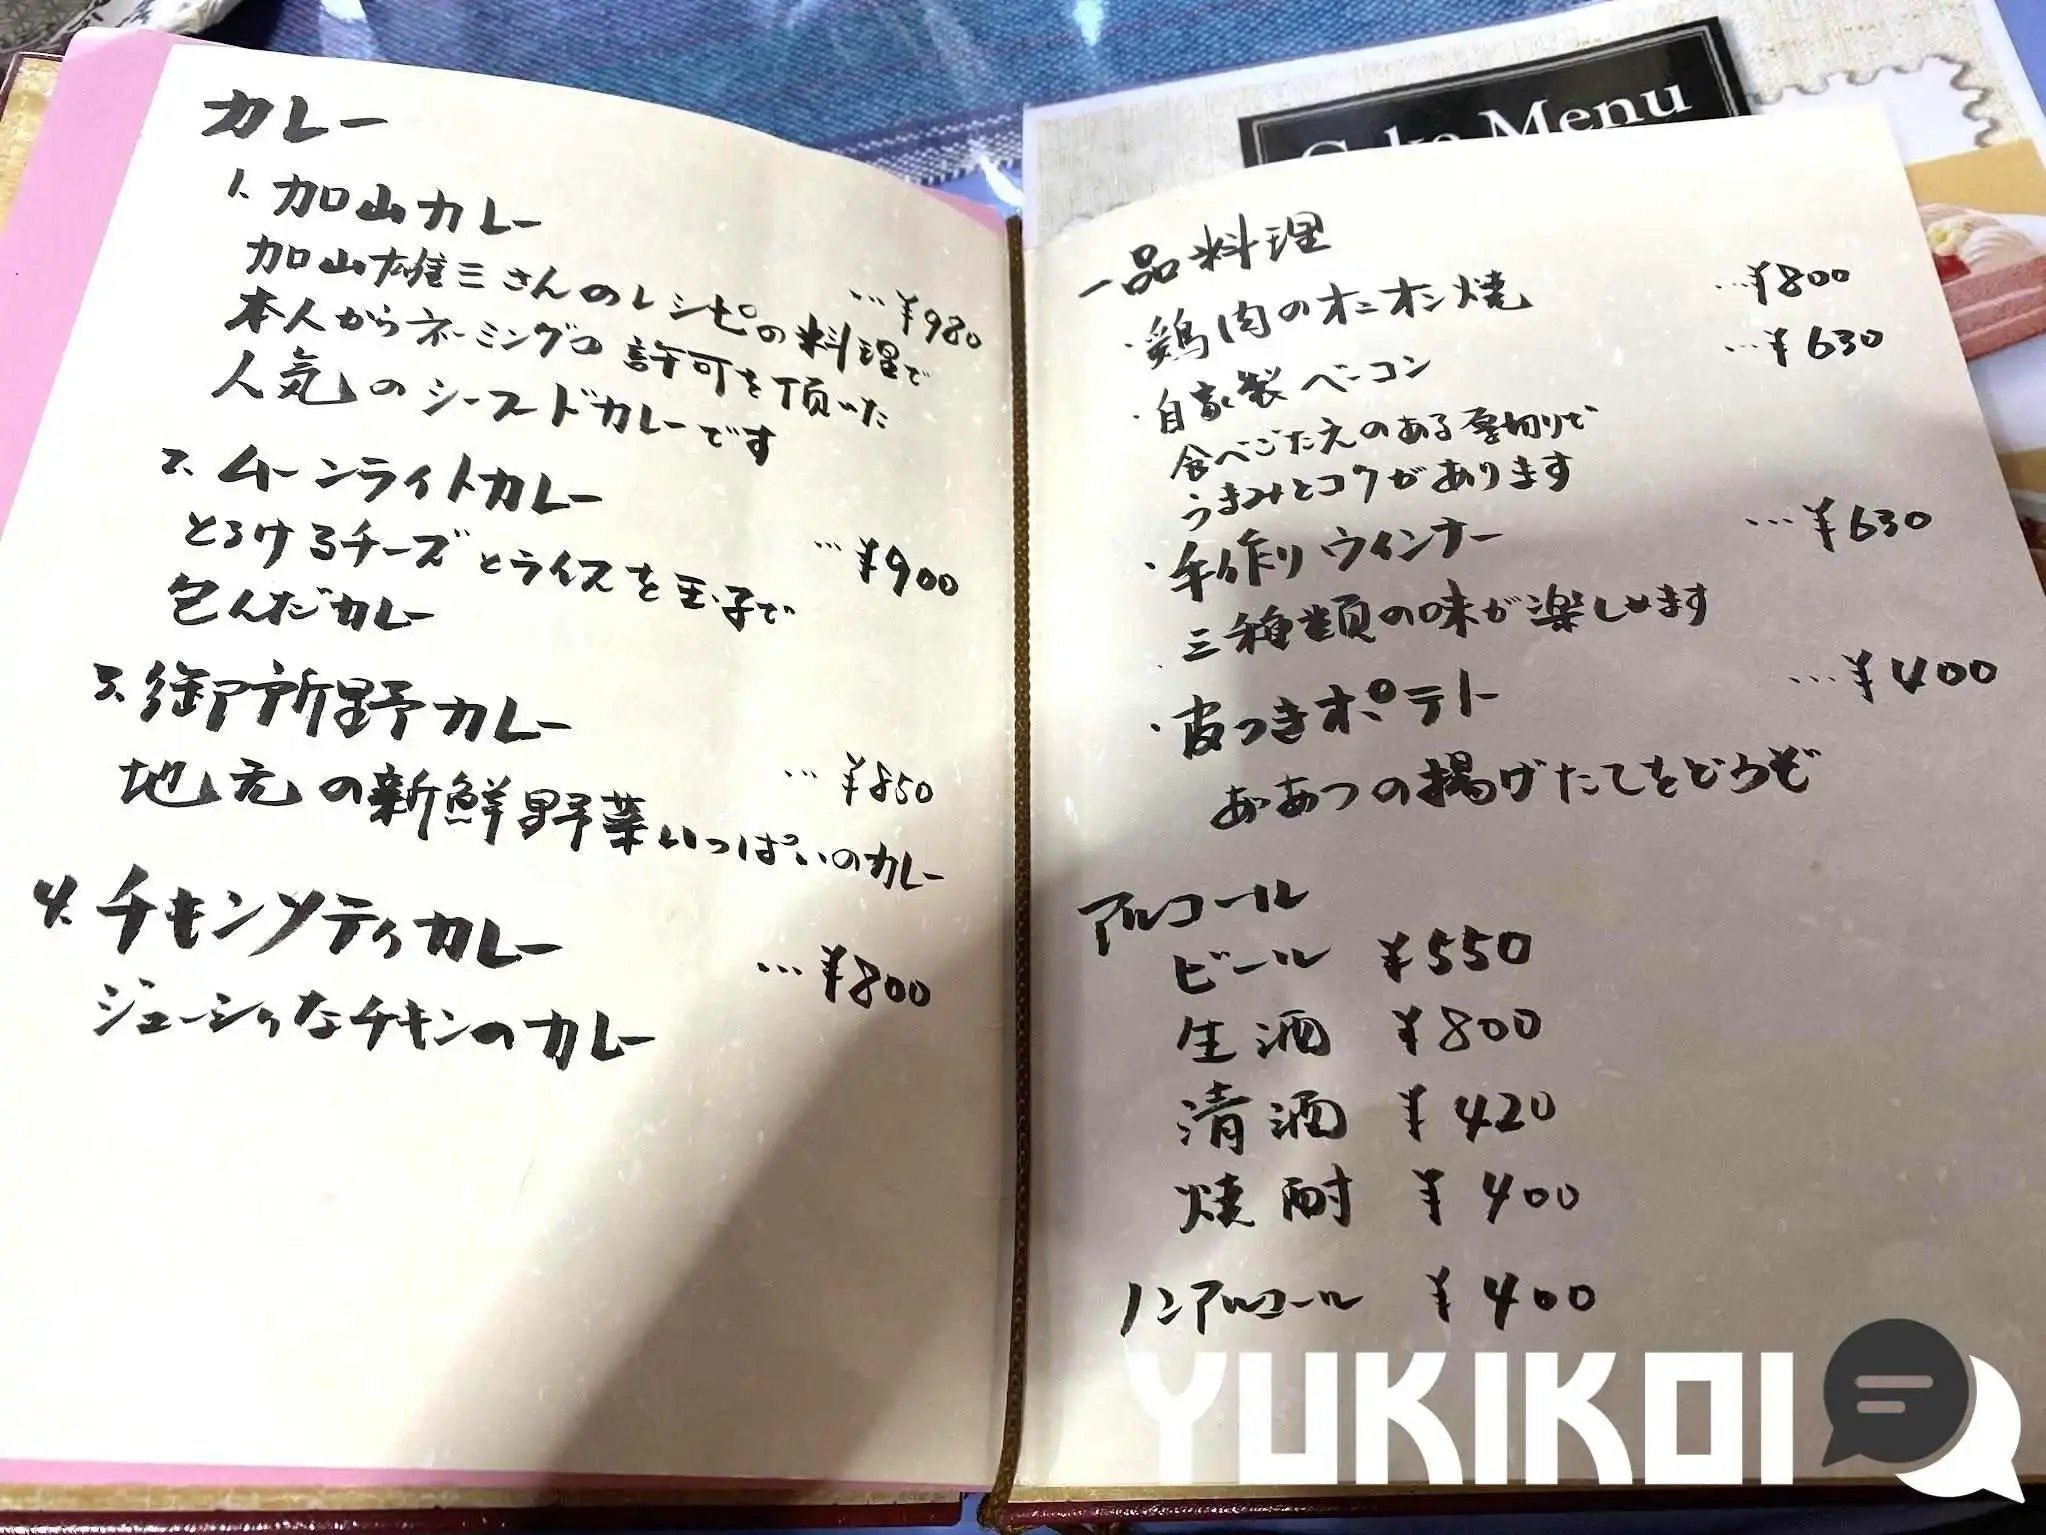 カレー
1. 加山カレー
…¥980
加山雄三さんのレシピの料理で
本人からネーミングの許可を頂いた
人気のシーフードカレーです
2. ムーンライトカレー
…¥900
とろけるチーズとライスを玉子で
包んだカレー
3. 御所野カレー
…¥850
地元の新鮮野菜いっぱいのカレー
4. チキンソティカレー
…¥800
ジューシィなチキンのカレー
Cake Menu
一品料理
・鶏肉のオニオン焼 …¥800
・自家製ベーコン …¥630
食べごたえのある厚切りで
うまみとコクがあります
・手作りウィンナー …¥630
三種類の味が楽しめます
・皮つきポテト …¥400
あつあつの揚げたてをどうぞ
アルコール
ビール ¥550
生酒 ¥800
清酒 ¥420
焼酎 ¥400
ノンアルコール ¥400
YUKIKOI